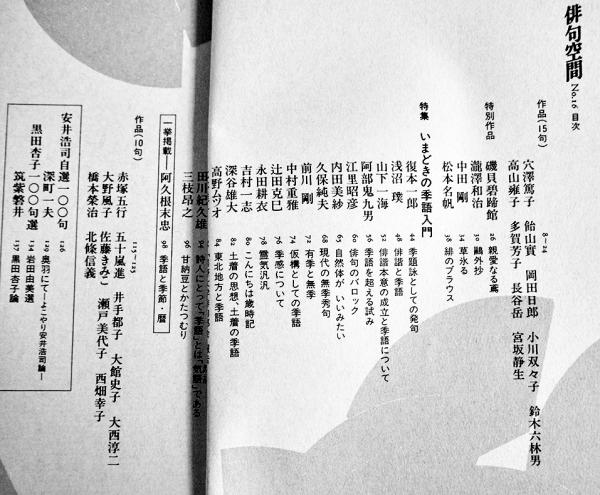 俳句空間 No.16 目次
作品(15句) 8-24
穴澤篤子 飴山實 岡田日郎 小川双々子 鈴木六林男
高山雍子 多賀芳子 長谷岳 宮坂静生
特別作品
磯貝碧蹄館 26 親愛なる鳶
瀧澤和治 30 鷗外抄
中田剛 34 草氷る
松本名帆 38 緋のブラウス
特集 いまどきの季語入門
復本一郎 44 季題詠としての発句
浅沼璞 48 俳諧と季語
山下一海 52 俳諧本意の成立と季語について
阿部鬼九男 56 季語を超える試み
江里昭彦 60 俳句のバロック
内田美紗 65 自然体が いいみたい
久保純夫 68 現代の無季秀句
前川剛 72 有季と無季
中村重雅 74 仮構としての季語
辻田克巳 76 季感について
永田耕衣 78 霊気汎汎
吉村一志 80 こんにちは歳時記
深谷雄大 82 土着の思想、土着の季語
高野ムツオ 84 東北地方と季語
田川紀久雄 詩人にとって「季語」とは「気語」である
三枝昂之 96 甘納豆とかたつむり
一挙掲載 阿久根末忠 98 季語と季節・暦
作品(10句) 112-125
赤塚五行 五十嵐進 井手都子 大館史子 大西淳二
大野風子 佐藤きみこ 瀬戸美代子 西畑幸子
橋本榮治 北條信義
安井浩司自選一〇〇句 126
深町一夫 129 奥羽にて―よこやり安井浩司論―
黒田杏子一〇〇句選 134 岩田由美選
筑紫磐井 137 黒田杏子論